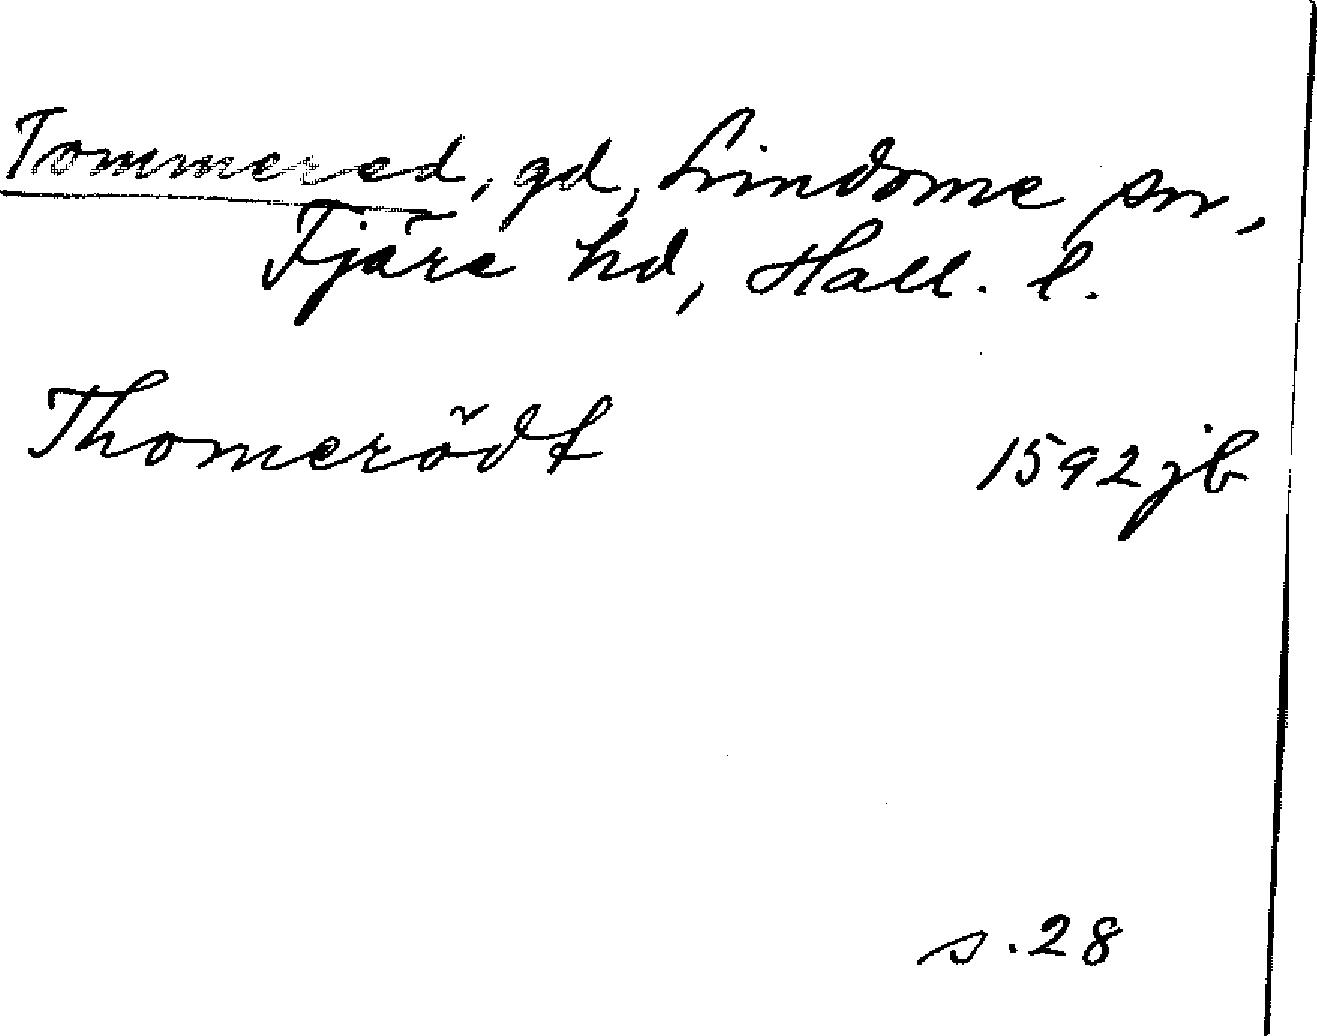 Tommered, gd, Lindome sn,
Fjäre hd, Hall. l.
Thomerödt 1592 jb
s. 28